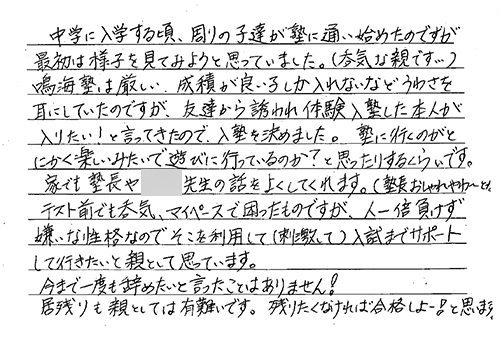 中学に入学する頃、周りの子達が塾に通い始めたのですが
最初は様子を見てみようと思っていました。(呑気な親です…)
鳴海塾は厳しい、成績が良い子しか入れないなどうわさを
耳にしていたのですが、友達から誘われ体験入塾した本人が
入りたい！と言ってきたので、入塾を決めました。塾に行くのがと
にかく楽しいみたいで遊びに行っているのか？と思ったりするくらいです。
家でも塾長や 先生の話をよくしてくれます。(塾長おしゃれやわ〜とか
テスト前でも呑気、マイペースで困ったものですが、人一倍負けず
嫌いな性格なのでそこを利用して(刺激して)入試までサポート
して行きたいと親として思っています。
今まで一度も辞めたいと言ったことはありません！
居残りも親としては有難いです。残りたくなければ合格しよー！と思います